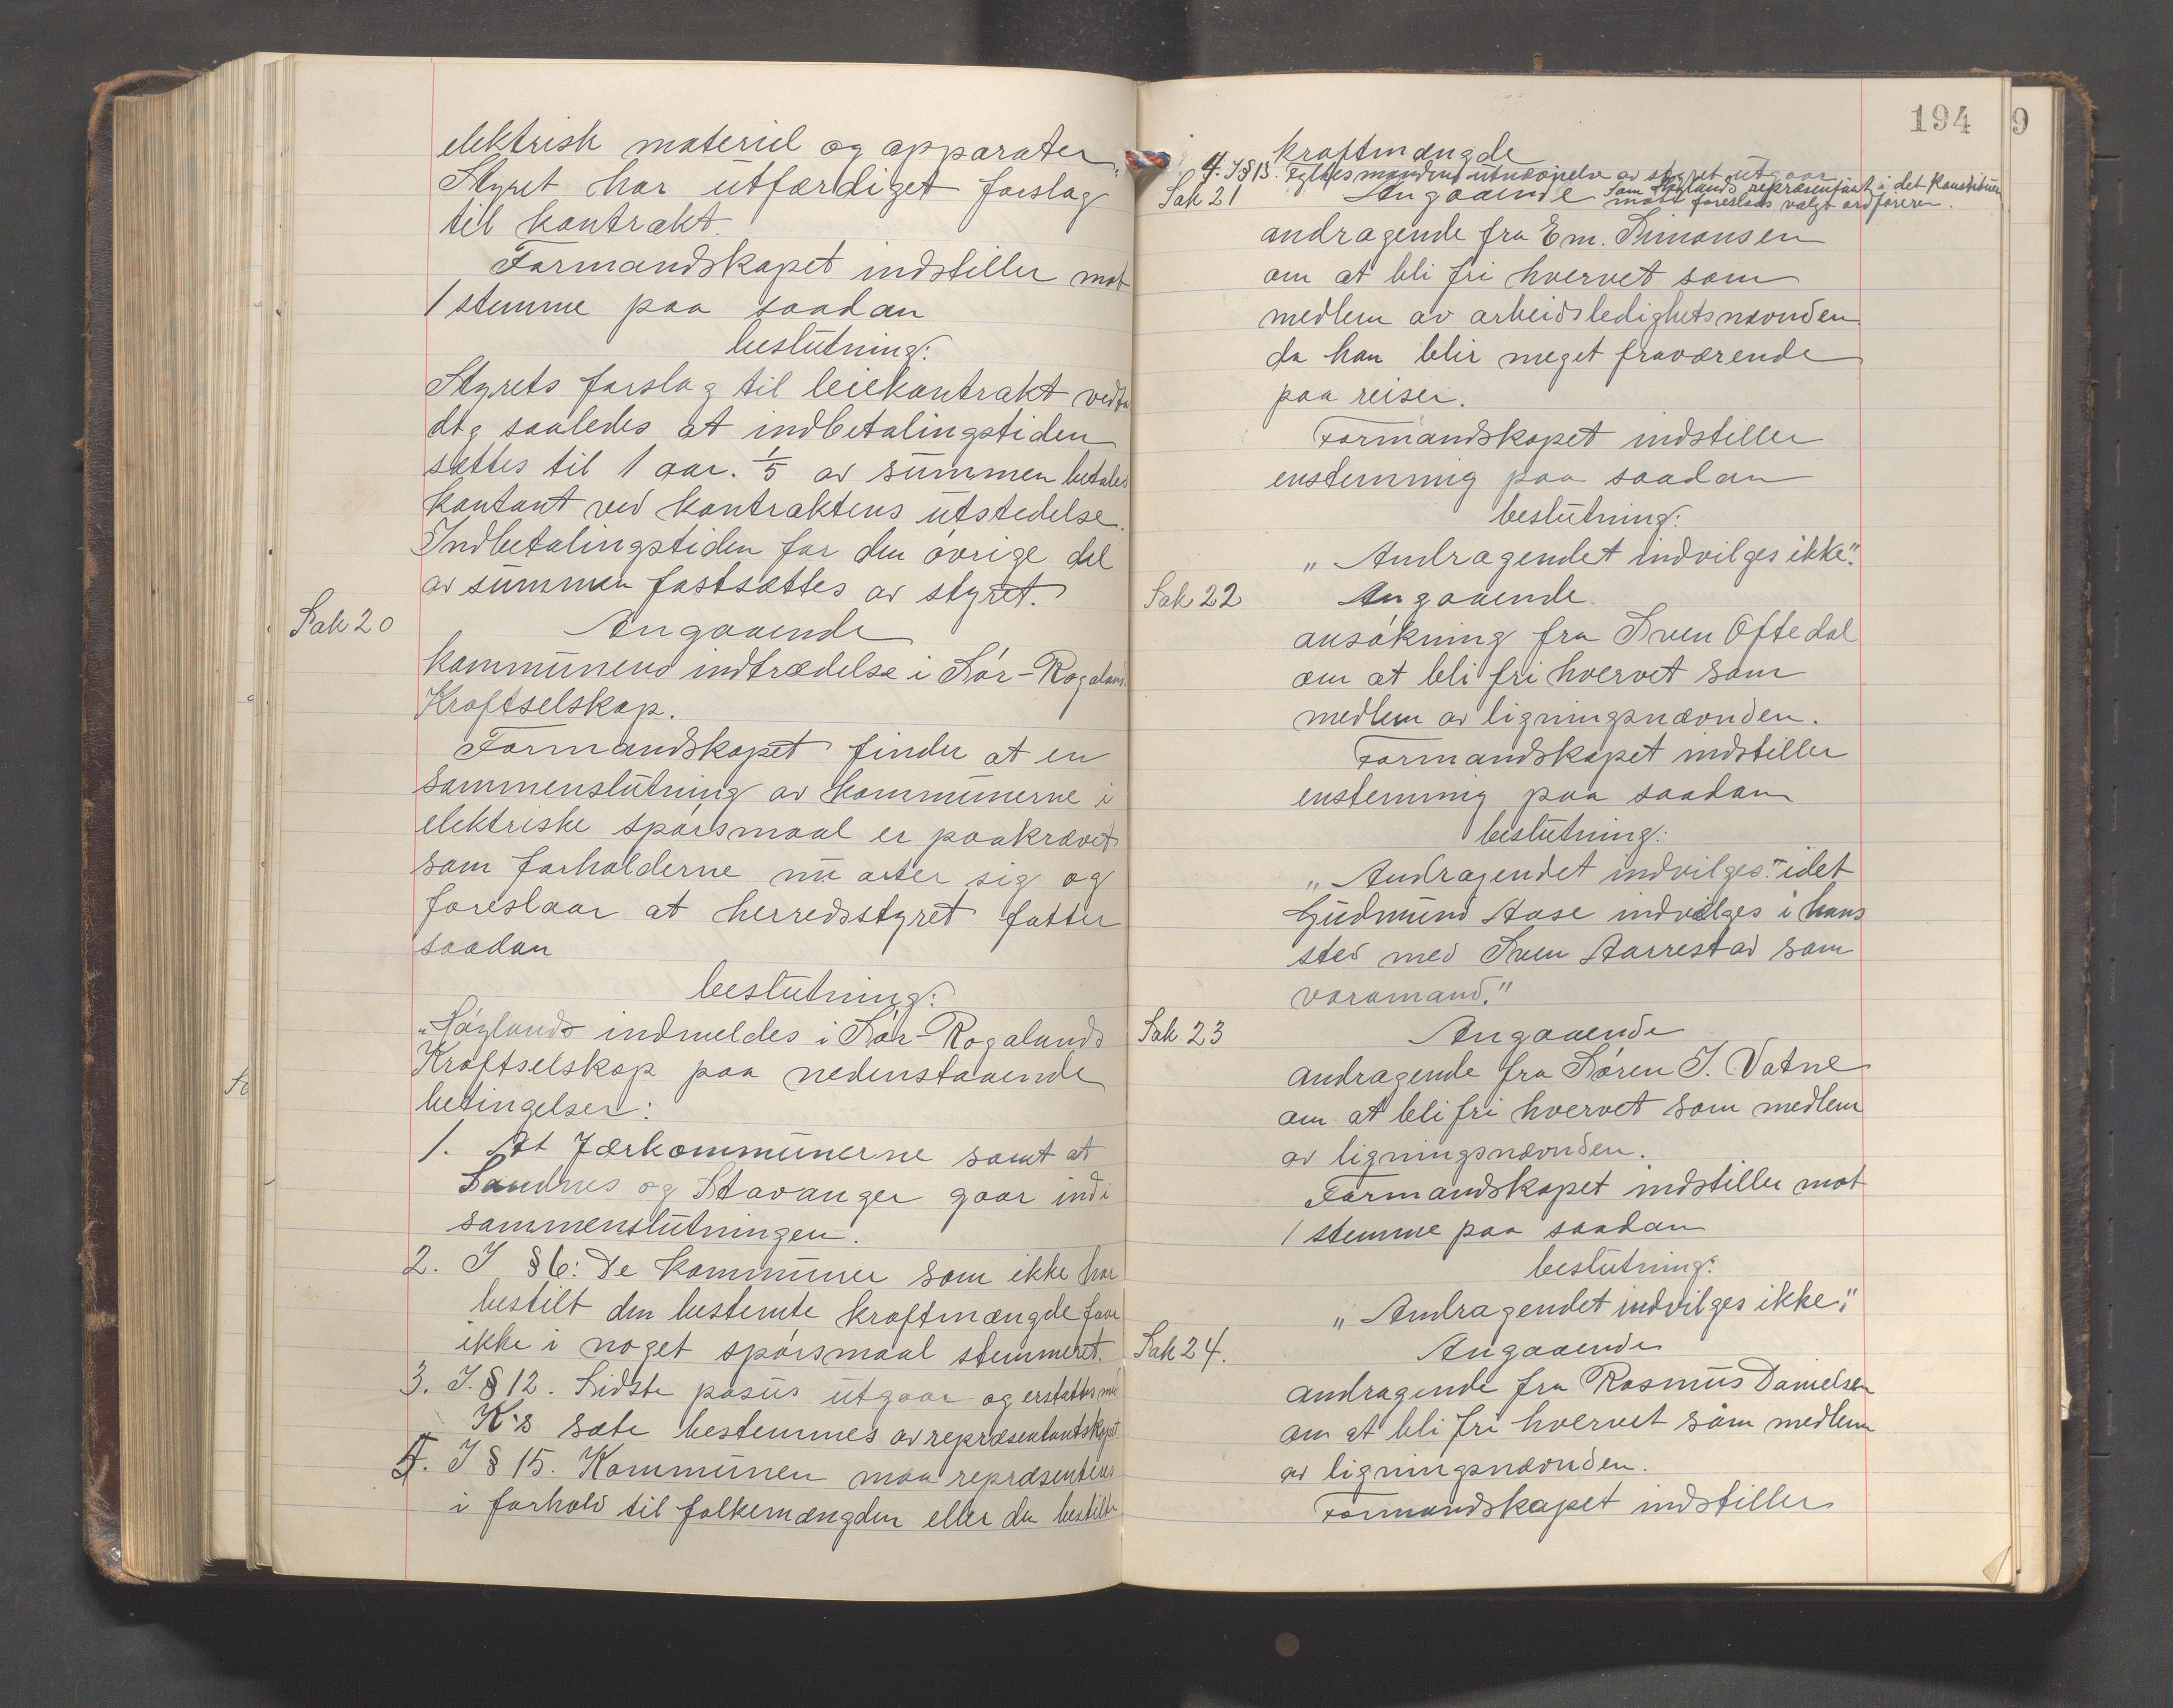 elektrisk materiel og apparater.
Styret har utfærdiget forslag
til kontrakt.
Formandskapet indstiller mot
1 stemme paa saadan
beslutning:
Styrets forslag til leiekontrakt vedta
dtg saaledes at indbetalingstiden
sættes til 1 aar. 1/5 av summen betales
kontant ved kontraktens utstedelse.
Indbetalingstiden for den øvrige del
av summen fastsættes av styret.
Sak 20
Angaaende
kommunens indtrædelse i Sør-Rogaland
Kraftselskap.
Formandskapet finder at en
sammenslutning av kommunerne i
elektriske spørsmaal er paakrævet
som forholderne nu arter sig og
foreslaar at herredsstyret fatter
saadan
beslutning:
"Høylands indmeldes i Sør-Rogalands
Kraftselskap paa nedenstaaende
betingelser:
1. At Jærkommunerne samt at
Sandnes og Stavanger gaar ind i
sammenslutningen.
2. I § 6: De kommuner som ikke har
bestilt den bestemte kraftmængde faar
ikke i noget spørsmaal stemmeret.
3. I. § 12. Sidste pasus utgaar og erstattes med
K's sæte bestemmes av repræsentantskapet
5. I § 15. Kommunen maa repræsenteres
i forhold til folkemængden eller den bestilte
194
9
kraftmængde
4. I § 13. Fylkesmandens utnævnelse av styret utgaar
Sak 21
Angaaende
Som Høylands repræsentant i det Konstituer
møte foreslaas valgt ordføreren.
andragende fra Em. Simonsen
om at bli fri hvervet som
medlem av arbeidsledighetsnævnden
da han blir meget fraværende
paa reiser.
Formandskapet indstiller
enstemmig paa saadan
beslutning:
"Andragendet indvilges ikke".
Sak 22
Angaaende
ansøkning fra Sven Oftedal
om at bli fri hvervet som
medlem av ligningsnævnden.
Formandskapet indstiller
enstemmig paa saadan
beslutning:
"Andragendet indvilges" idet
Gudmund Aase indvælges i hans
sted med Sven Aarrestad som
varamand."
Sak 23
Angaaende
andragende fra Søren I. Vatne
om at bli fri hvervet som medlem
av ligningsnævnden.
Formandskapet indstiller mot
1 stemme paa saadan
beslutning:
"Andragendet indvilges ikke".
Sak 24.
Angaaende
andragende fra Rasmus Danielsen
om at bli fri hvervet som medlem
av ligningsnævnden.
Formandskapet indstiller